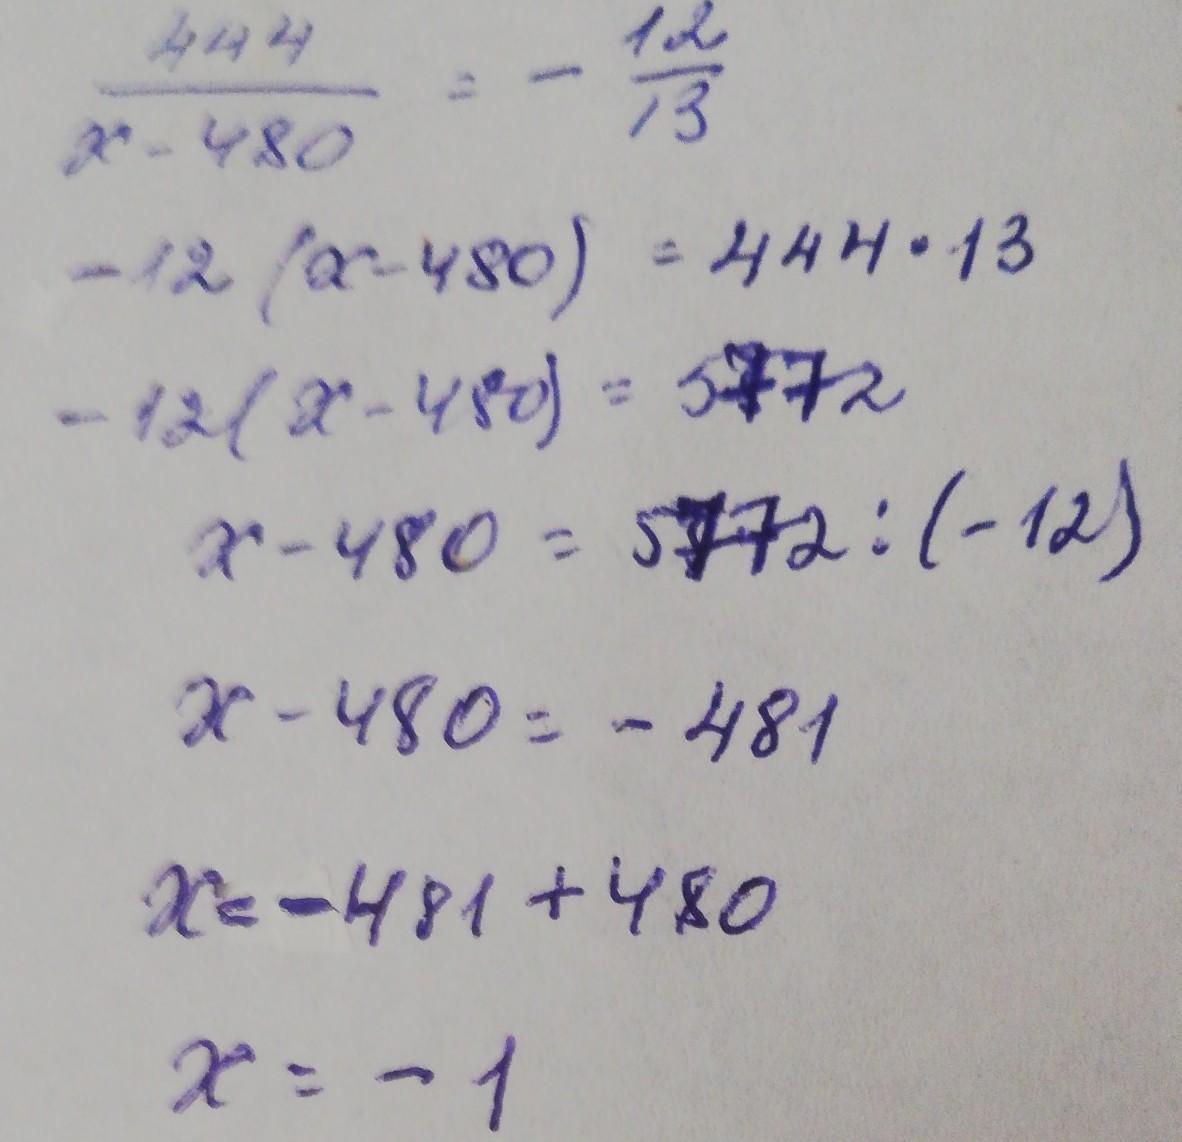 444/(x - 480) = - 12/13
-12 (x - 480) = 444 · 13
-12 (x - 480) = 5772
x - 480 = 5772 : (-12)
x - 480 = - 481
x = -481 + 480
x = - 1